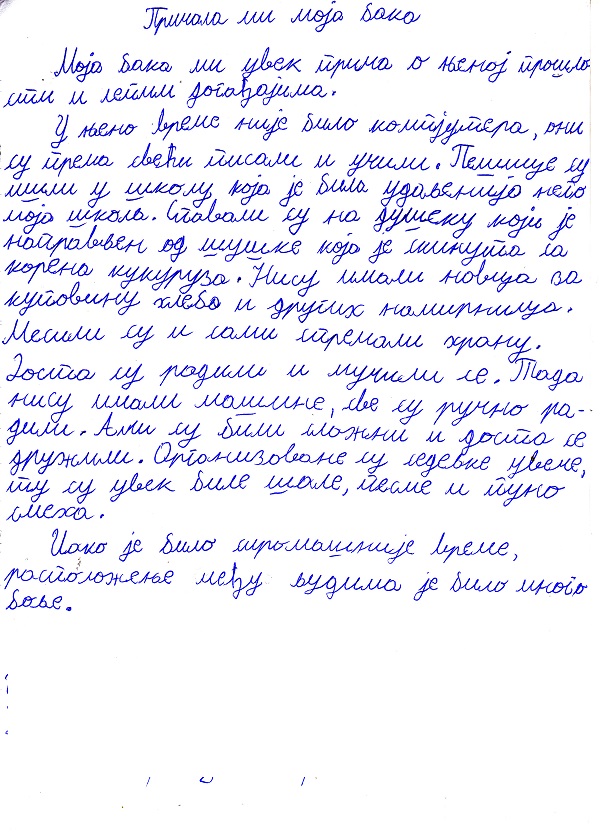 Причала ми моја бака
Моја бака ми увек прича о њеној прошло
сти и лепим догађајима.
У њено време није било компјутера, они
су према свећи писали и учили. Пешице су
ишли у школу која је била удаљенија него
моја школа. Спавали су на душеку који је
направљен од шушке која је скинута са
корена кукуруза. Нису имали новца за
куповину хлеба и других намирница.
Месили су и сами спремали храну.
Доста су радили и мучили се. Тада
нису имали машине, све су ручно ра-
дили. Али су били сложни и доста се
дружили. Организоване су седељке увече,
ту су увек биле шале, песме и пуно
смеха.
Иако је било сиромашније време,
расположење међу људима је било много
боље.